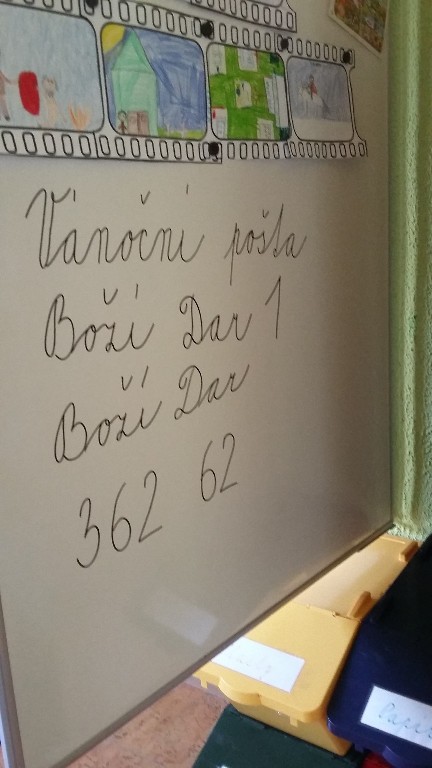 Vánoční pošta
Boží Dar 1
Boží Dar
362 62